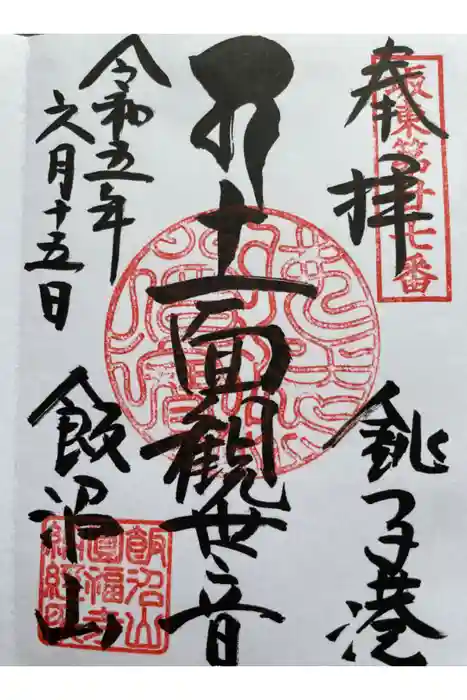 奉拝
坂東第廿七番
銚子港
十一面観世音
令和五年
六月十五日
飯沼山
飯沼山
圓福寺
納経印